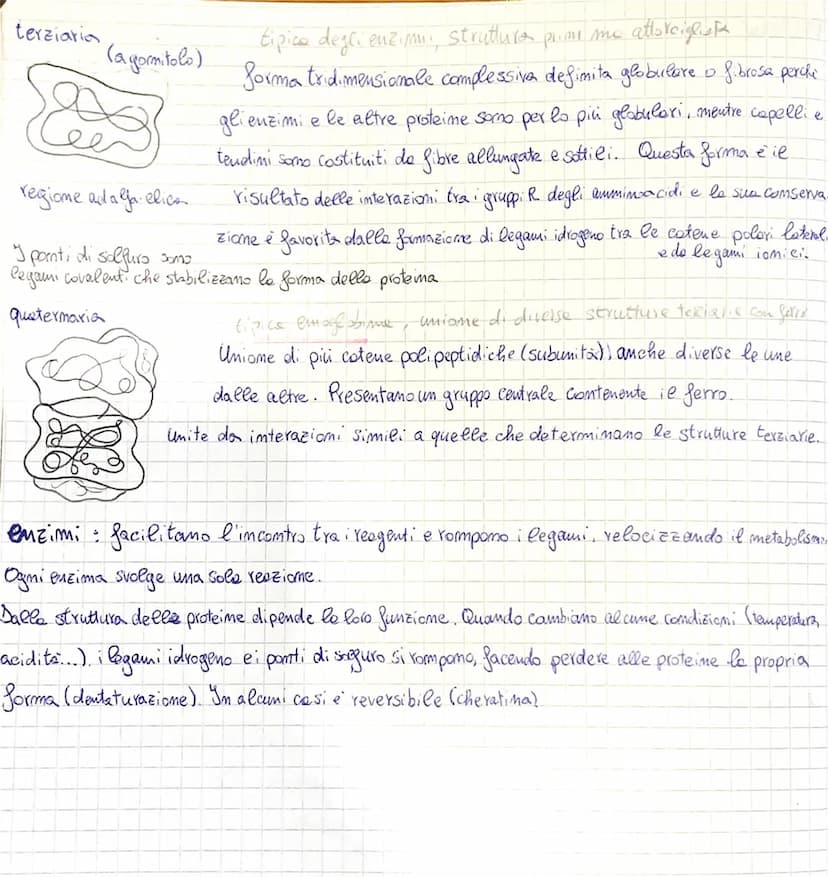 terziaria
(a gomitolo)
tipica degli enzimi, struttura prima ma attorcigliata
forma tridimensionale complessiva definita globulare o fibrosa perché
gli enzimi e le altre proteine sono per lo più globulari, mentre capelli e
tendini sono costituiti da fibre allungate e sottili. Questa forma è il
regione ad alfa elica
risultato delle interazioni tra i gruppi R degli amminoacidi e la sua conserva
zione è favorita dalla formazione di legami idrogeno tra le catene polari laterali
e da legami ionici.
I ponti di solfuro sono
legami covalenti che stabilizzano la forma della proteina
quaternaria
tipica emoglobina, unione di diverse strutture terziarie con ferro
Unione di più catene polipeptidiche (subunità) anche diverse le une
dalle altre. Presentano un gruppo centrale contenente il ferro.
Unite da interazioni simili a quelle che determinano le strutture terziarie.
enzimi : facilitano l'incontro tra i reagenti e rompono i legami, velocizzando il metabolismo.
Ogni enzima svolge una sola reazione.
Dalla struttura delle proteine dipende la loro funzione. Quando cambiano alcune condizioni (temperatura,
acidità...) i legami idrogeno e i ponti di solfuro si rompono, facendo perdere alle proteine la propria
forma (denaturazione). In alcuni casi è reversibile (cheratina)